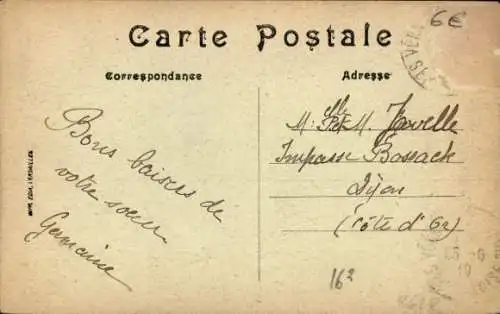 6€
Carte Postale
Correspondance
Adresse
Bons baisers de
votre soeur
Germaine
M. elle P. et M. Javelle
Impasse Bossack
Dijon
(Côte d'Or)
16²